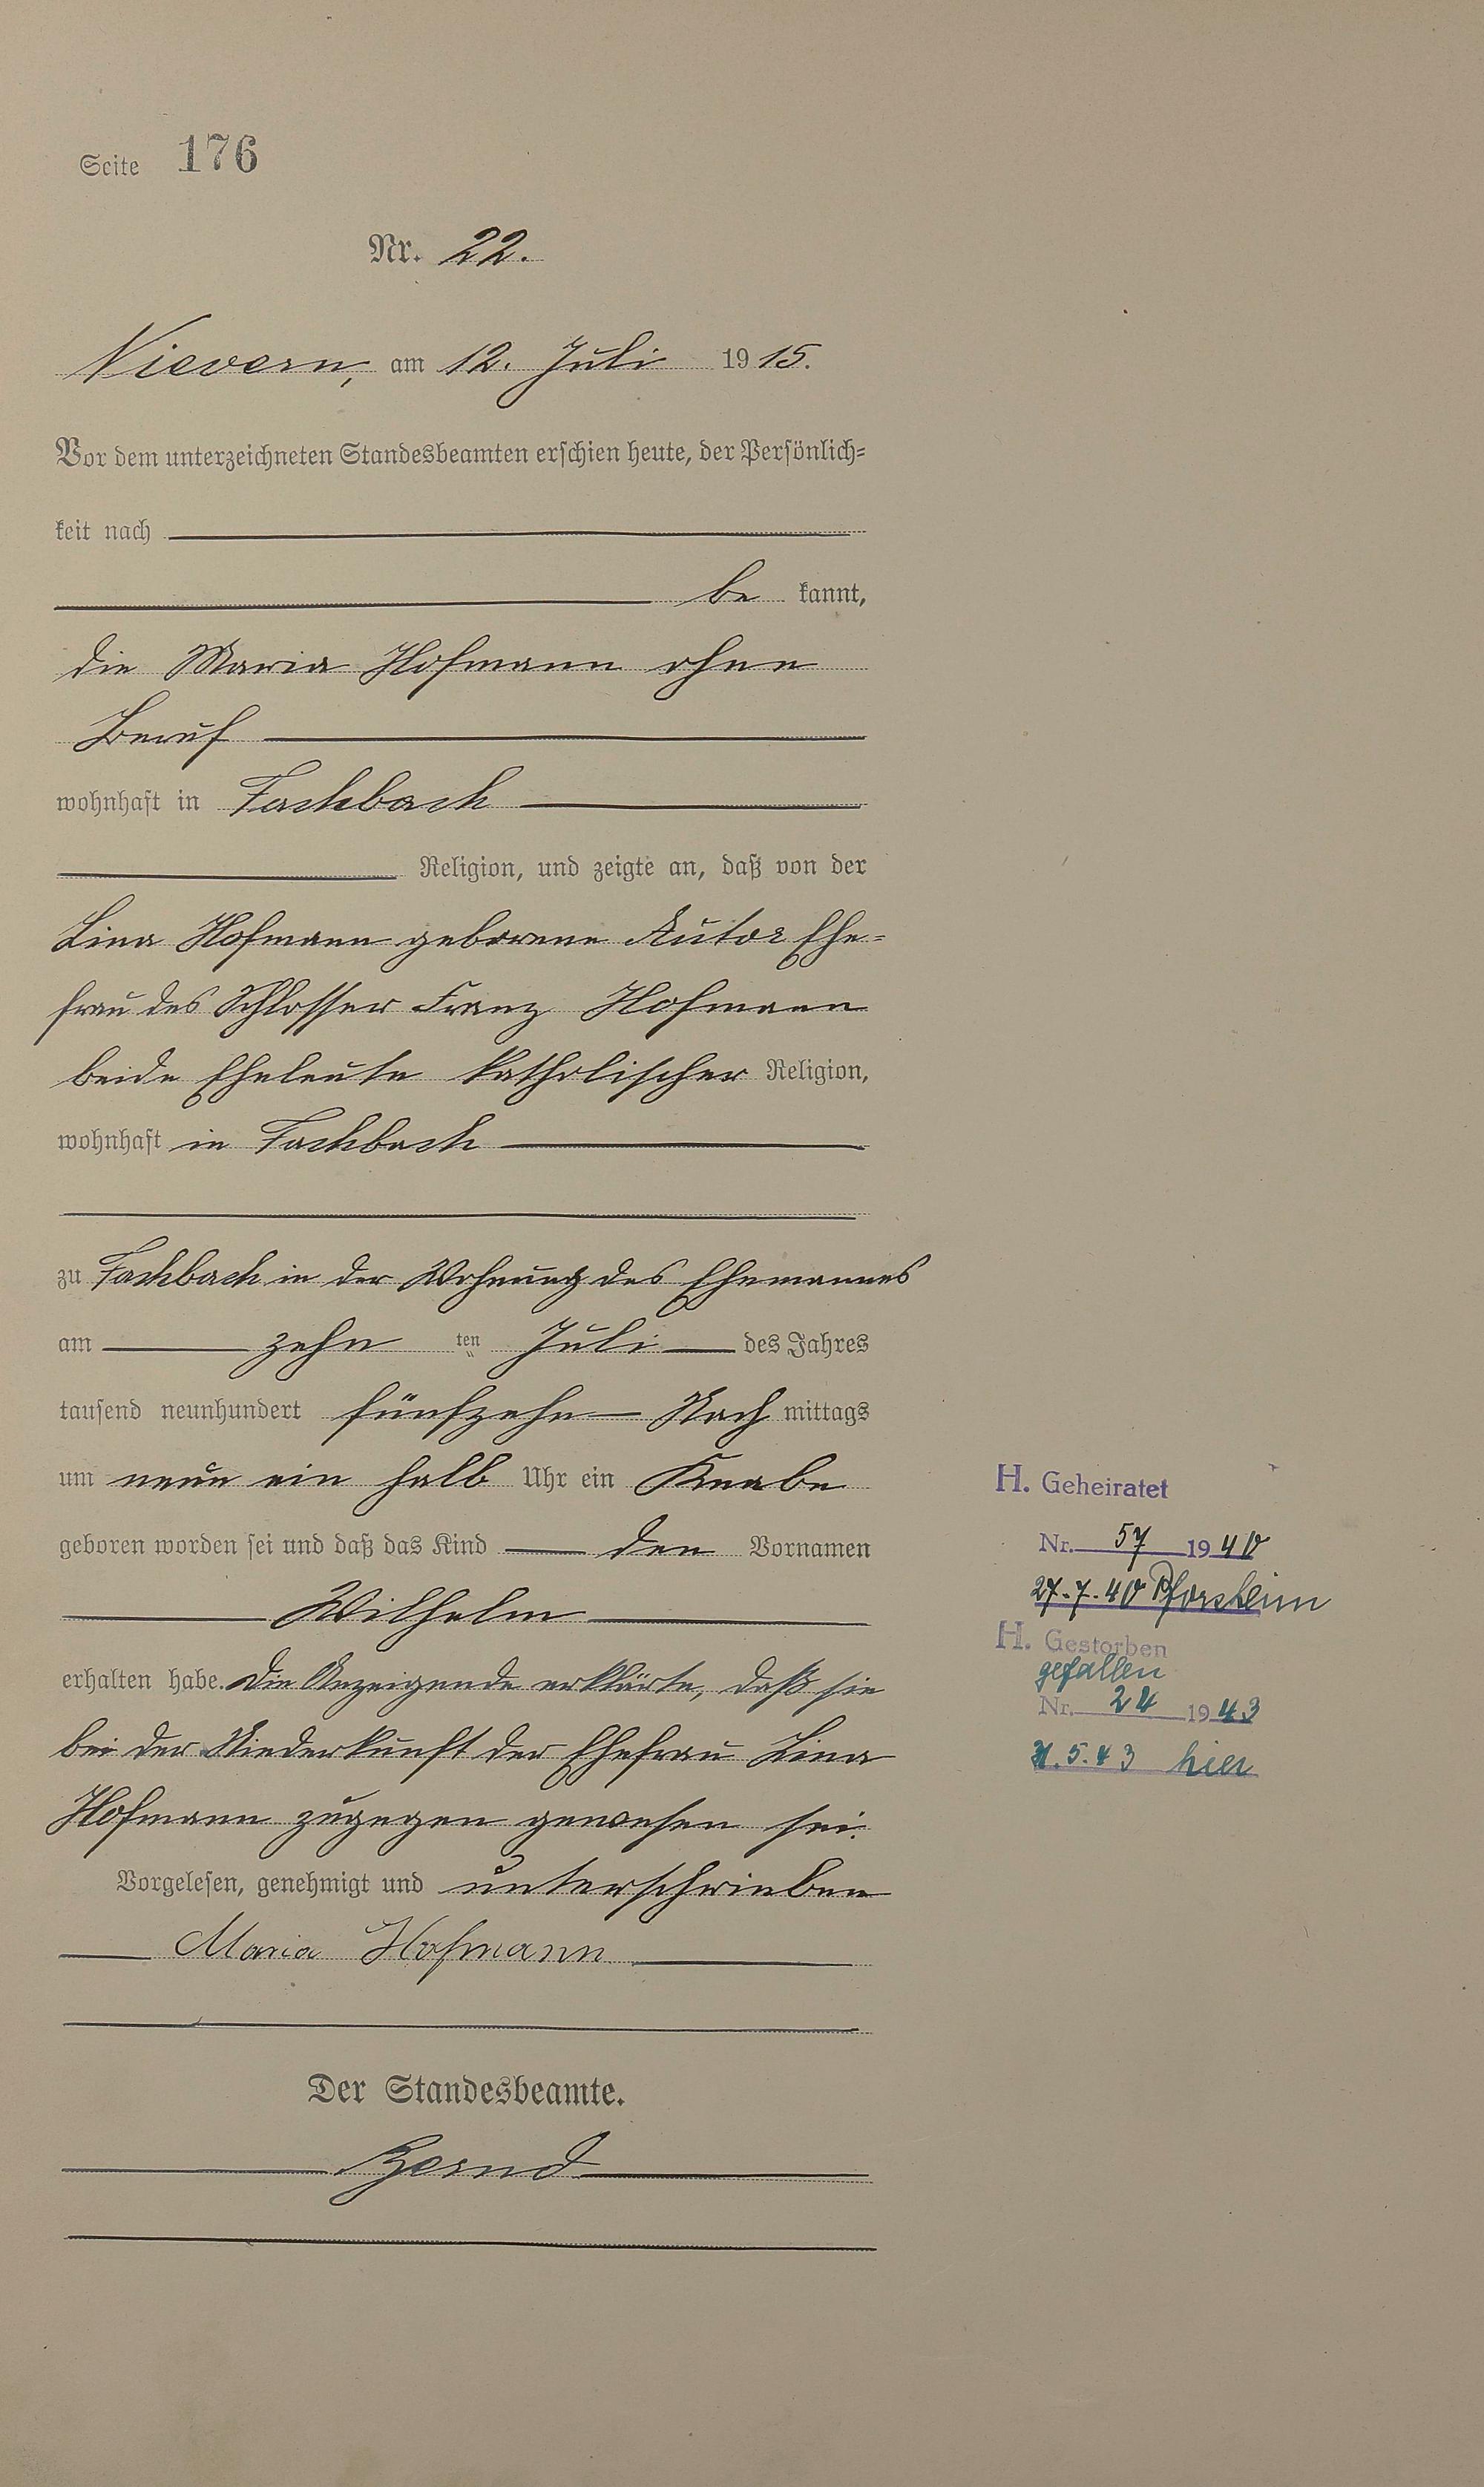 Seite 176
Nr. 22.
Nievern, am 12. Juli 1915.
Vor dem unterzeichneten Standesbeamten erschien heute, der Persönlich=
keit nach
be kannt,
die Maria Hofmann ohne
Beruf
wohnhaft in Fachbach
Religion, und zeigte an, daß von der
Lina Hofmann geborene Autor Ehe=
frau des Schlosser Franz Hofmann
beide Eheleute katholischer Religion,
wohnhaft in Fachbach
zu Fachbach in der Wohnung des Ehemannes
am zehn ten Juli des Jahres
tausend neunhundert fünfzehn Nach mittags
um neun ein halb Uhr ein Knabe
geboren worden sei und daß das Kind den Vornamen
Wilhelm
erhalten habe. Die Anzeigende erklärte, daß sie
bei der Niederkunft der Ehefrau Lina
Hofmann zugegen gewesen sei.
Vorgelesen, genehmigt und unterschrieben
Maria Hofmann
Der Standesbeamte.
H. Geheiratet
Nr. 57 1940
27.7.40 Pforzheim
H. Gestorben
gefallen
Nr. 24 1943
5.43 hier